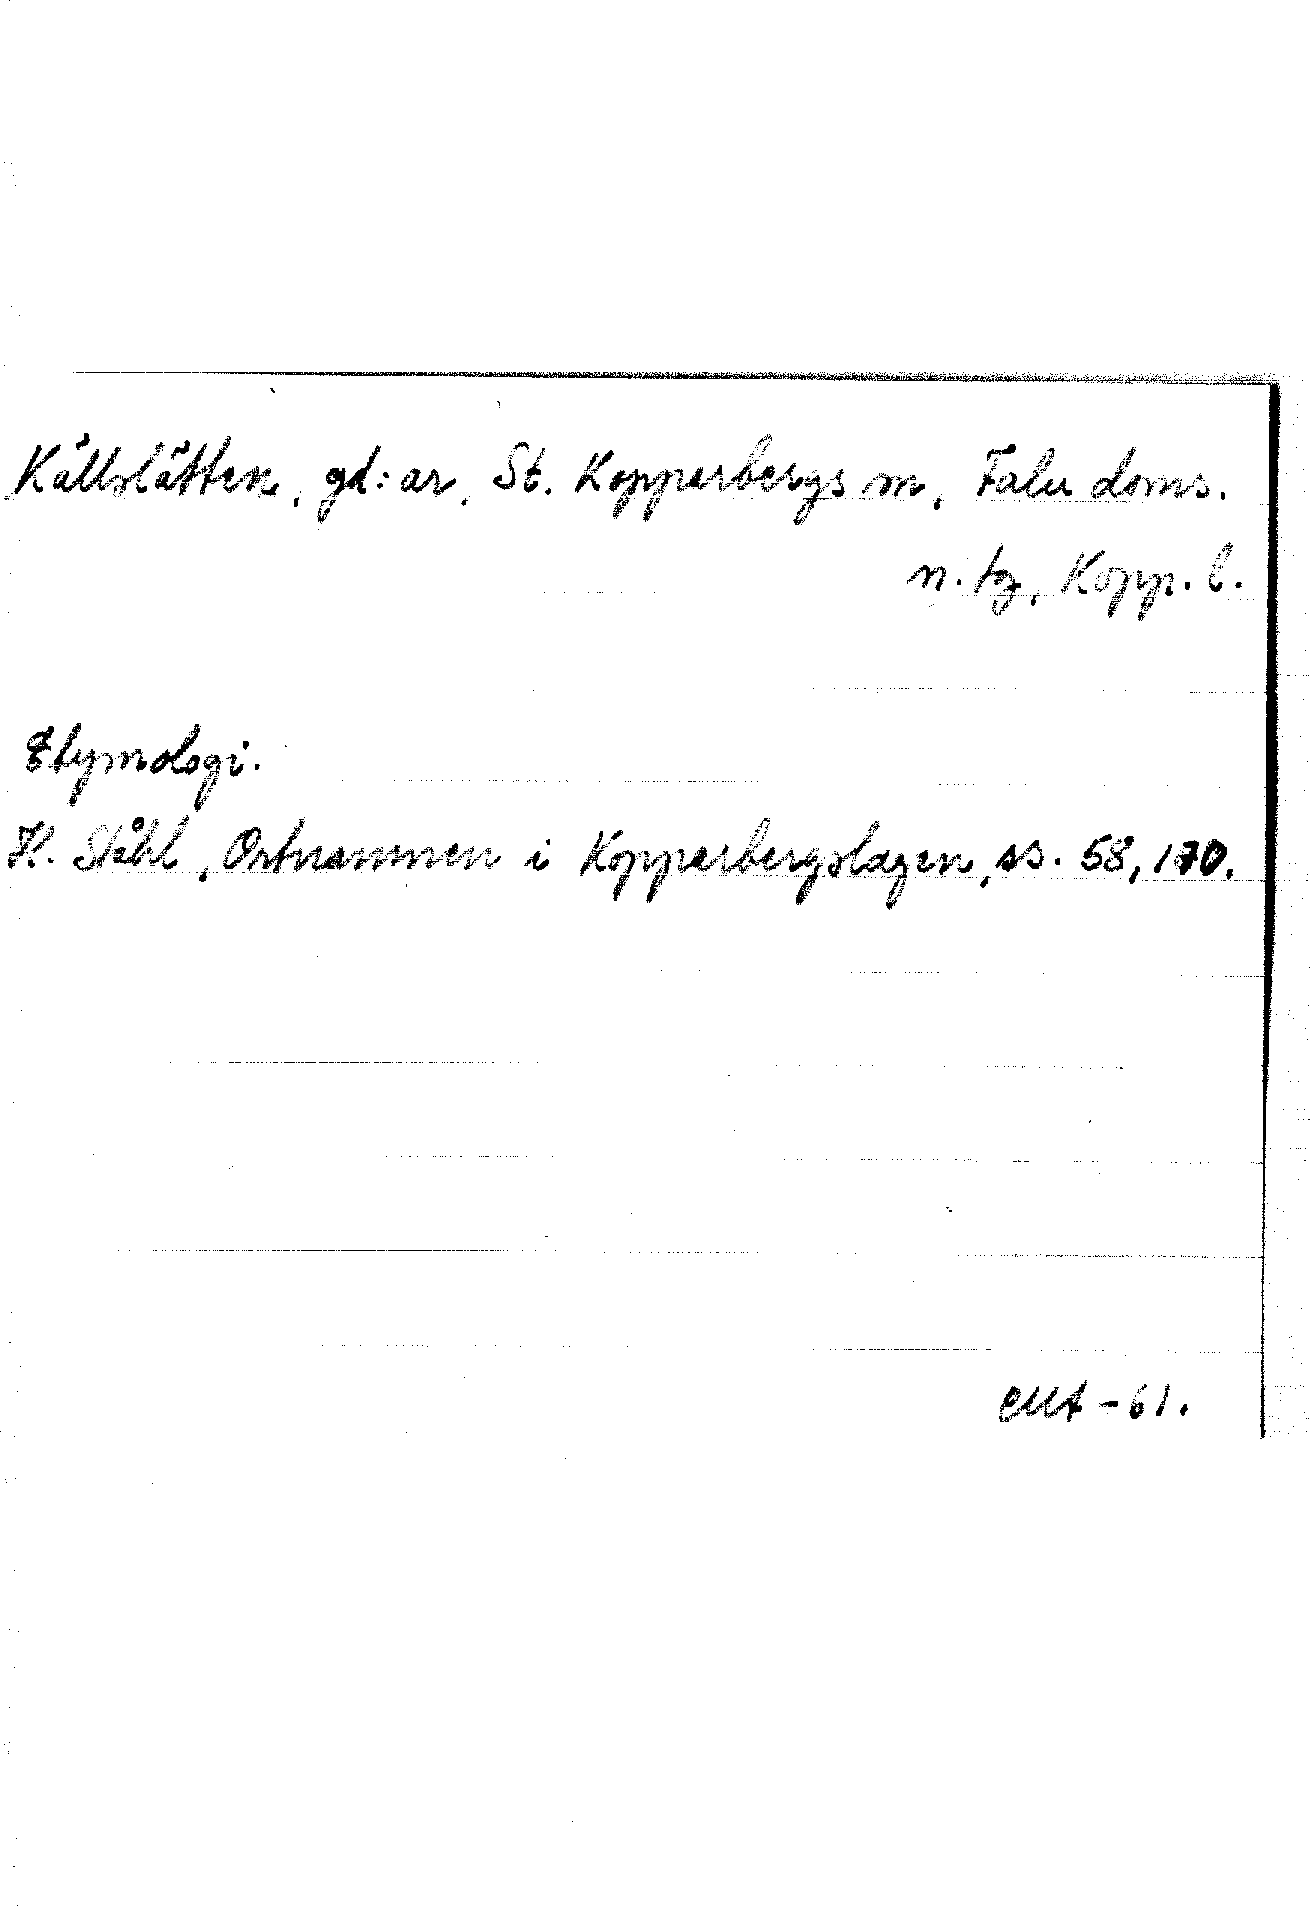 Källslätten, gd:ar, St. Kopparbergs sn, Falu doms.
n. tg, Kopp. l.
Etymologi.
H. Ståhl, Ortnamnen i Kopparbergslagen, ss. 58, 170.
-61.